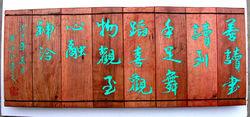 善讀書
讀到
手足舞
蹈喜觀
物觀至
心融
神洽